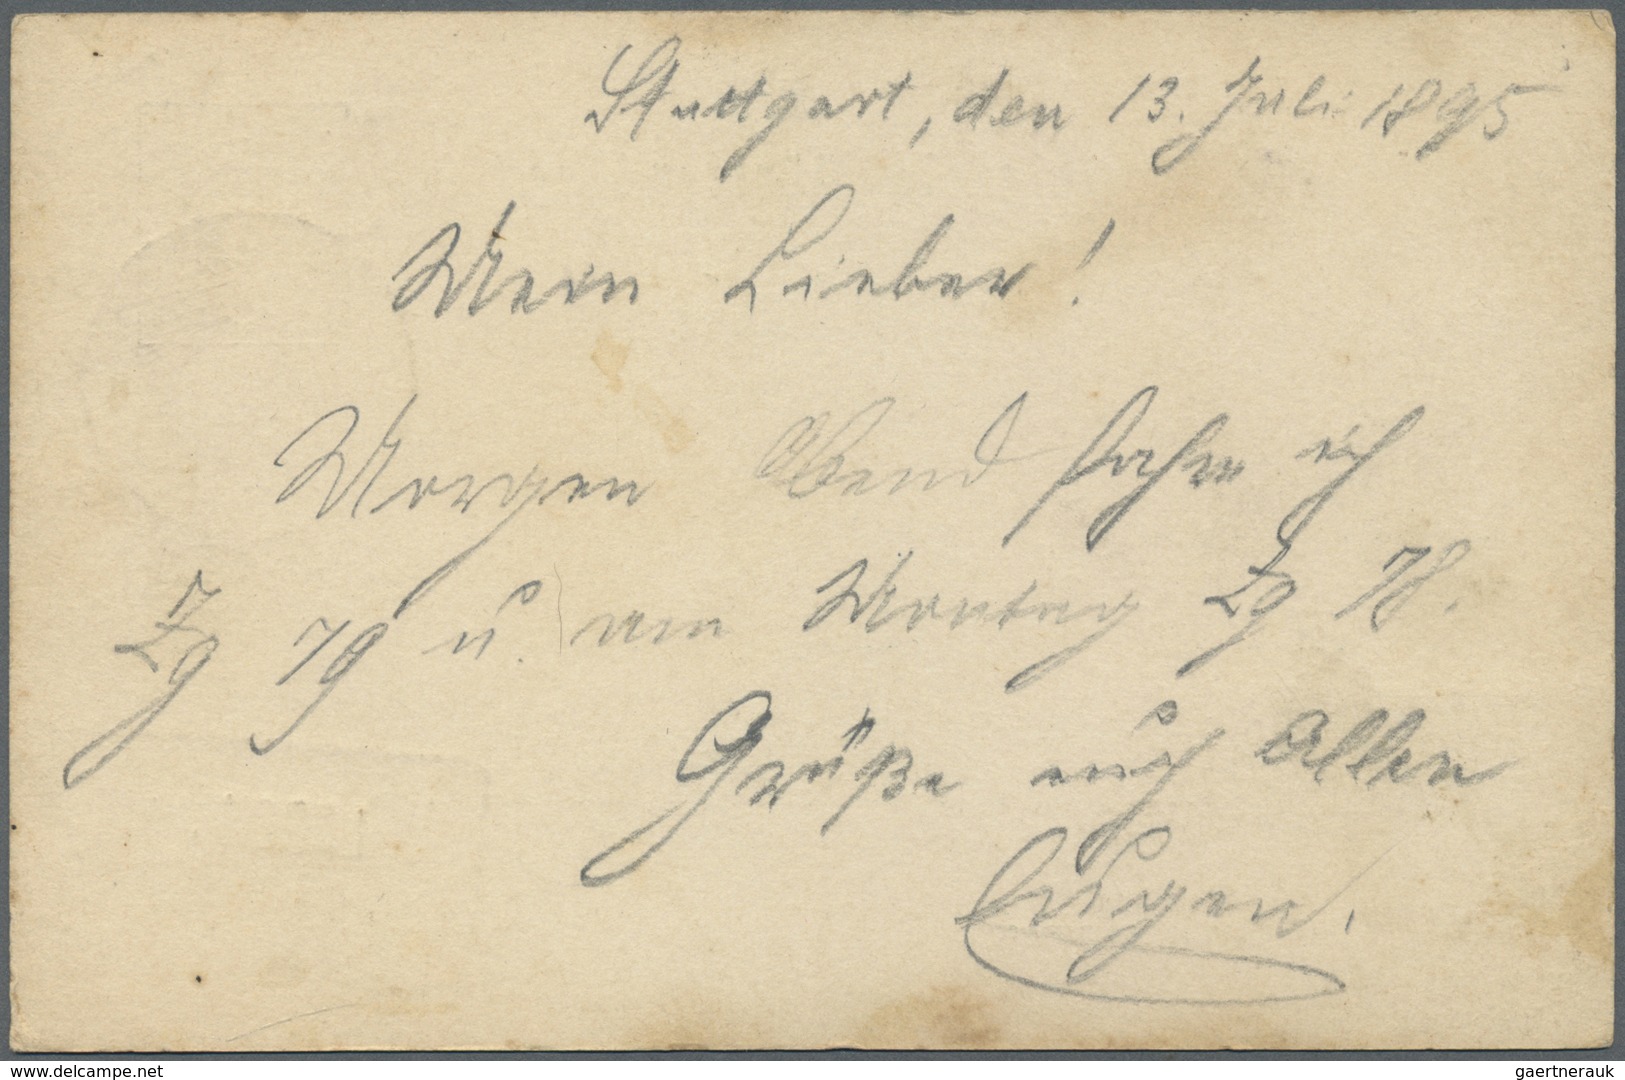 Stuttgart, den 13. Juli 1895
Mein Lieber!
Morgen Abend fahre ich
Zg 79 u. am Montag Zg 78.
Grüße euch Allen
Eugen.
delcampe.net
gaertnerauk